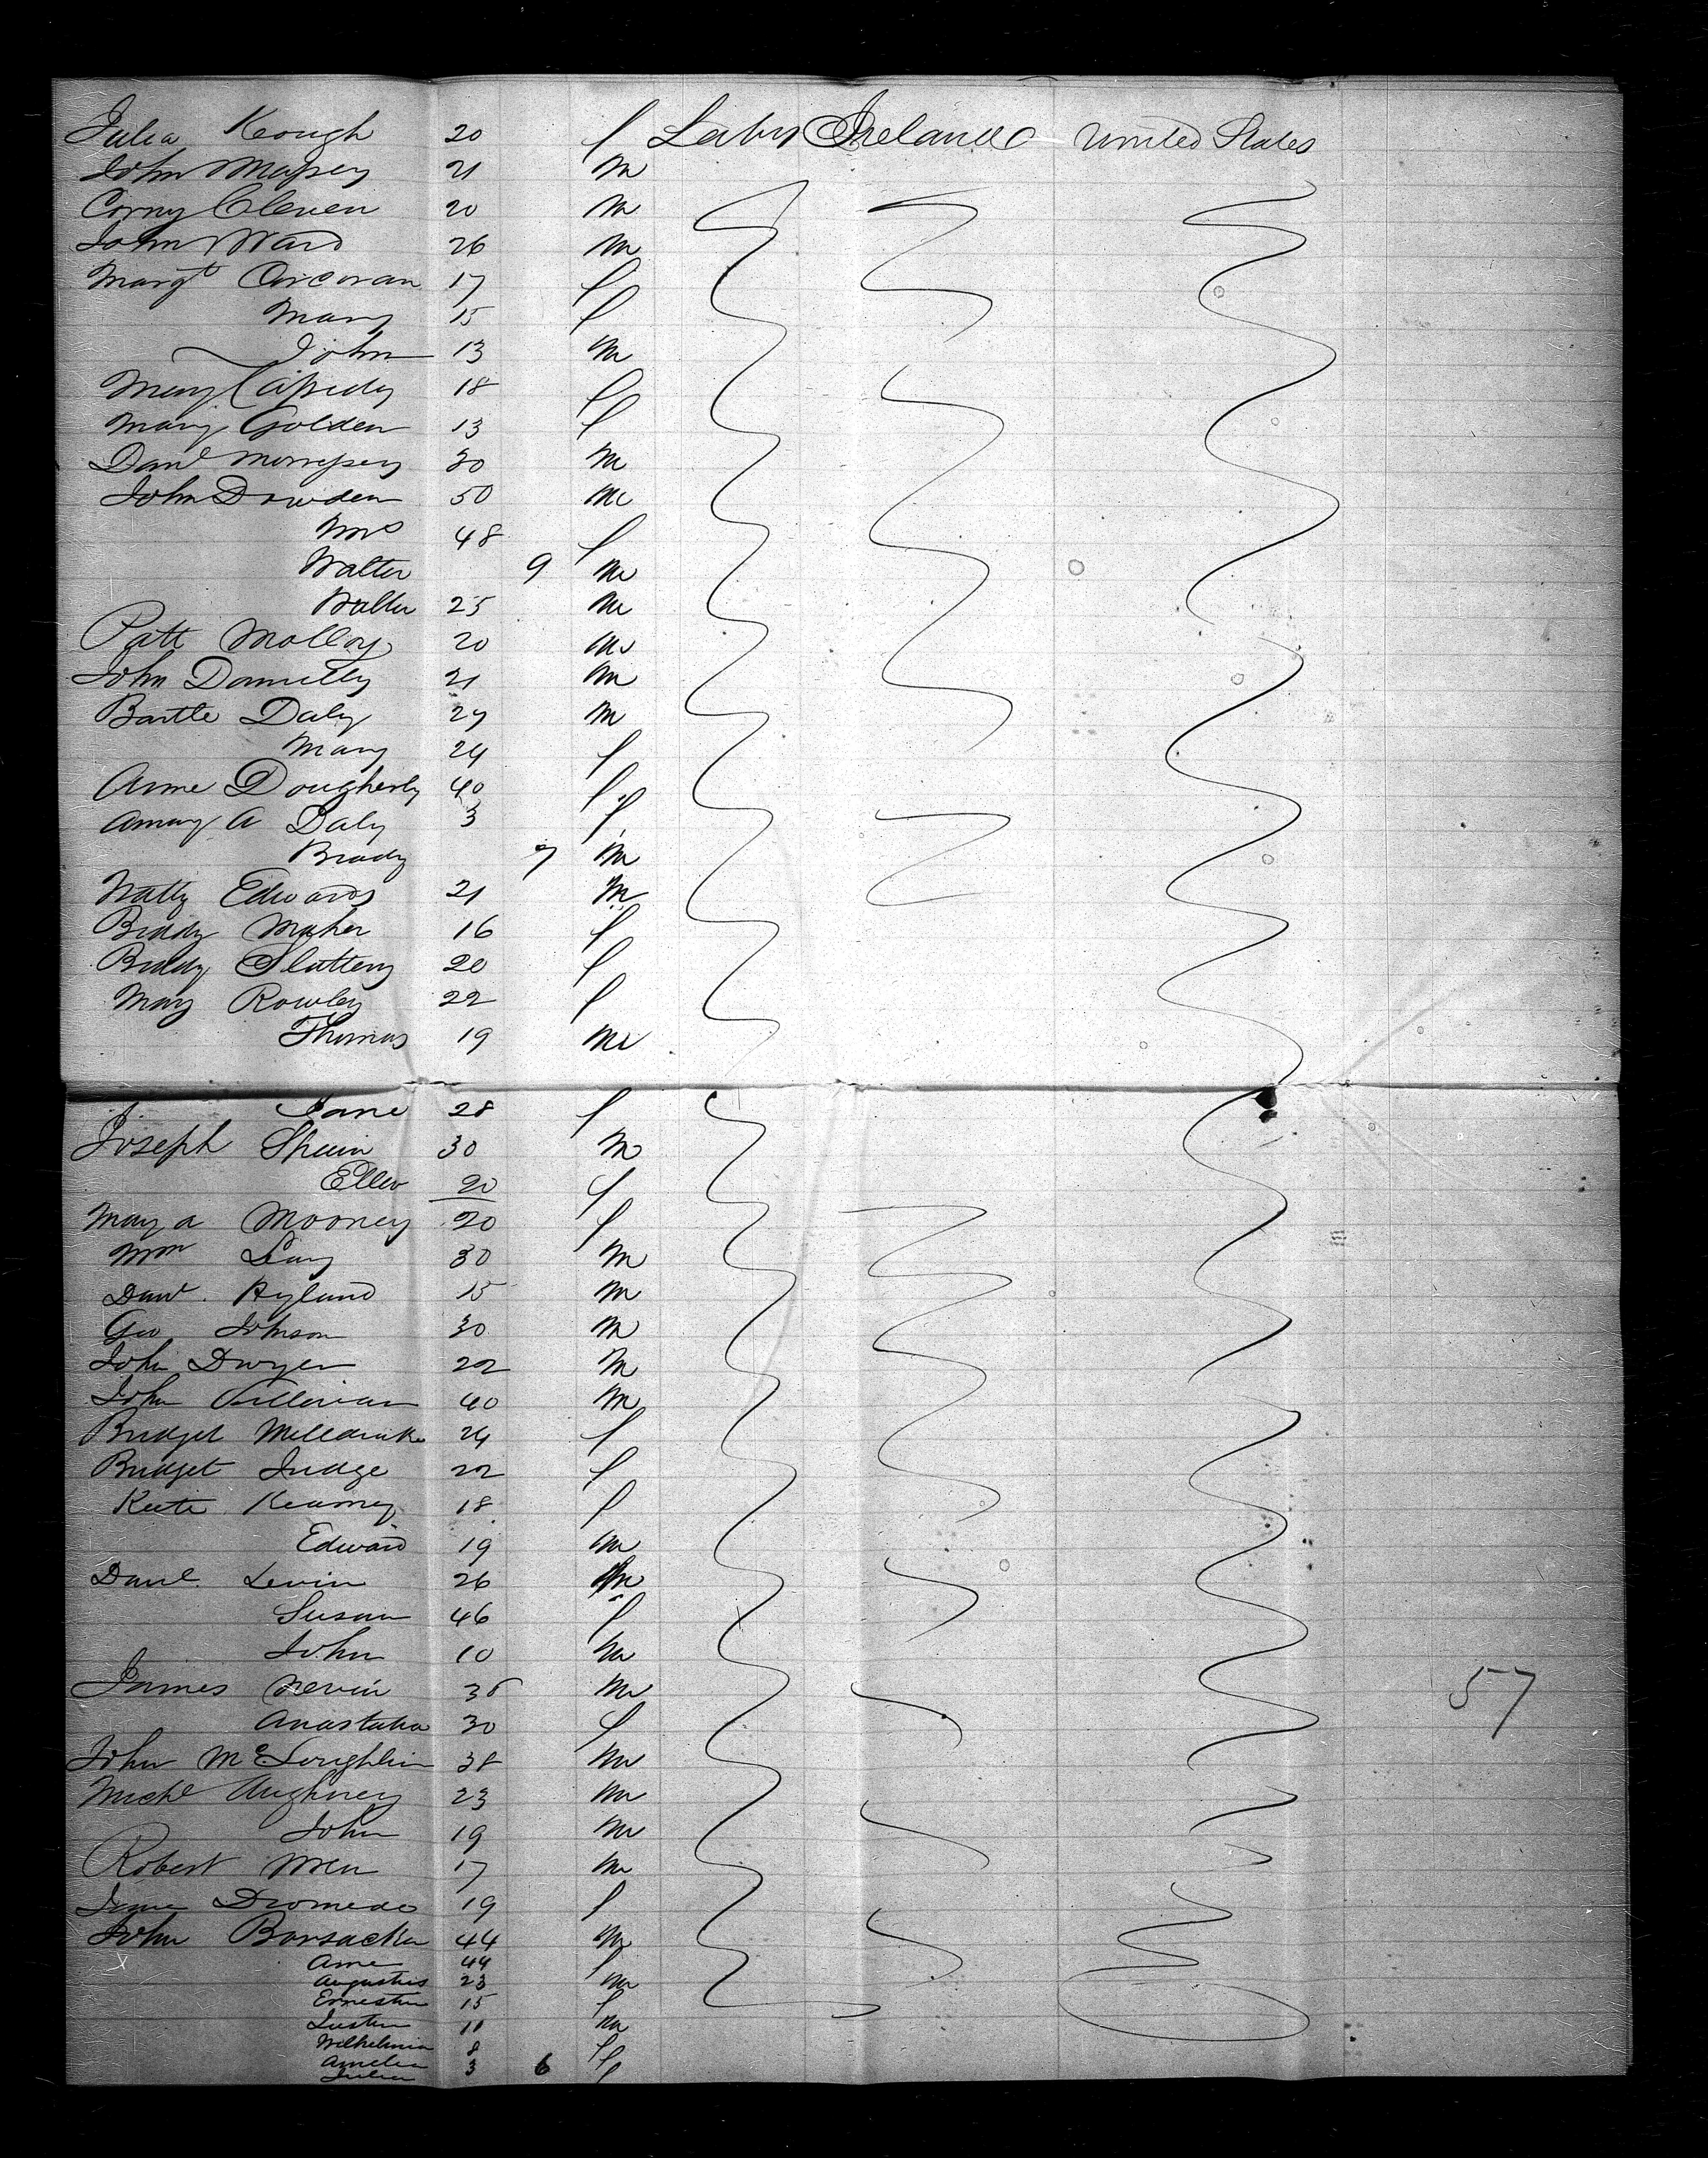 Julia Keough 20 f Labrs Ireland United States
John Massey 21 m
Corny Cleven 20 m
John Ward 26 m
Margt Corcoran 17 f
Mary 15 f
John 13 m
Mary Cassidy 18 f
Mary Golden 13 f
Danl Morrissey 30 m
John Dowden 50 m
Mrs 48 f
Walter 9 m
Walter 25 m
Patt Molloy 20 m
John Donnelly 21 m
Bartle Daly 27 m
Mary 24 f
Anne Dougherty 40 f
A Daly 3 f
Brady 7 m
Watty Edwards 21 m
Biddy Maher 16 f
Biddy Slattery 20 f
Mary Rowley 22 f
Thomas 19 m
Jane 28 f
Joseph 30 m
Ellen 20 f
Mary A Mooney 20 f
Wm 30 m
Danl. Hyland 15 m
Geo Johnson 30 m
John Dwyer 22 m
John Sullivan 40 m
Bridget 24 f
Bridget Judge 22 f
Kate Kearney 18 f
Edward 19 m
Danl. Levin 26 m
Susan 46 f
John 10 m
James Nevin 36 m 57
Anastatia 30 f
John McLoughlin 38 m
Michl Aughney 23 m
John 19 m
Robert Wren 17 m
Jane 19 f
John 44 m
Anne 44 f
Augustus 23 m
15 f
11 m
Wilhelmia 8 f
Amelia 3 f
Julia 6 f